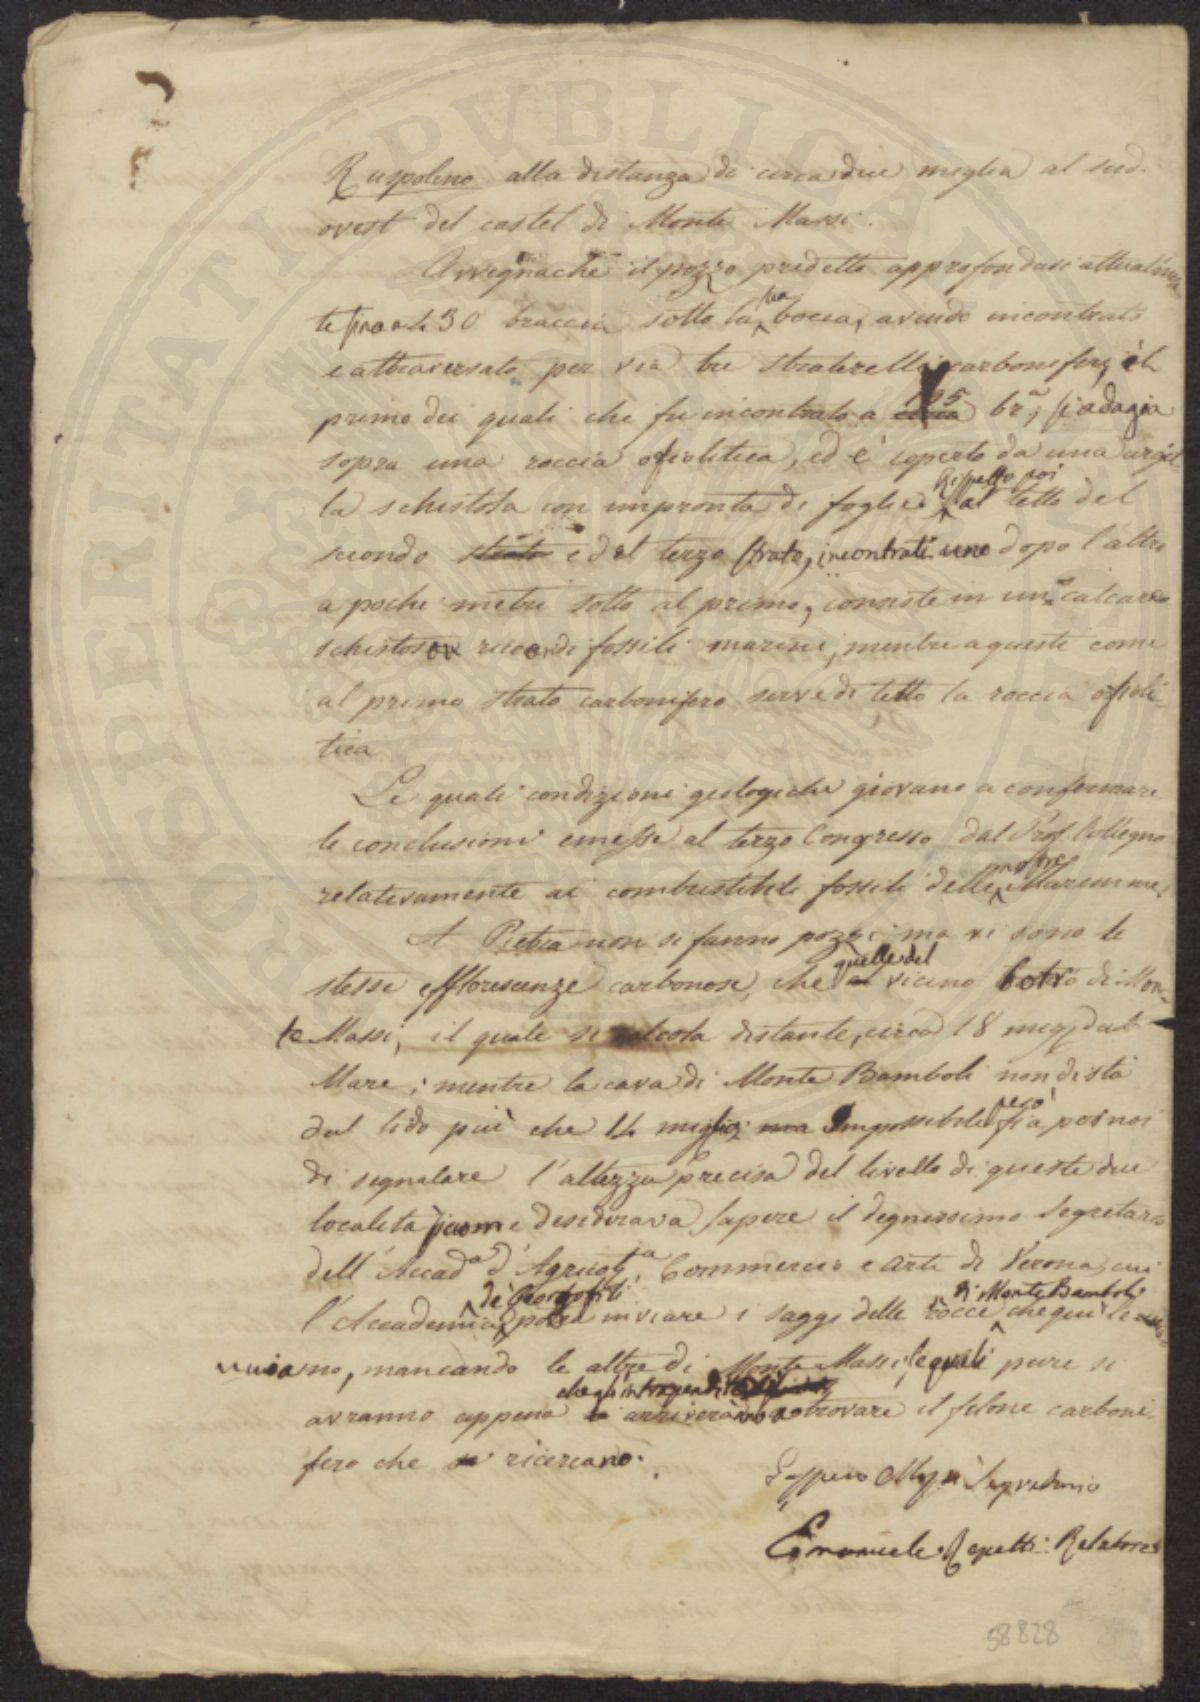 Ruspolino alla distanza di circa due miglia al sud-
ovest del castel di Monte Massi.
Avvegnachè il pozzo predetto approfondasi attualmen-
te fino a 130 braccia sotto la sua bocca, avendo incontrato
e attraversato per via tre straterelli carboniferi, il
primo dei quali che fu incontrato a 105 br.a, si adagia
sopra una roccia ofiolitica, ed è coperto da una argil-
la schistosa con impronta di foglie. Rispetto poi al tetto del
secondo strato e del terzo strato, incontrati uno dopo l'altro
a pochi metri sotto al primo, consiste in un calcareo
schistoso ricco di fossili marini, mentre a questi come
al primo strato carbonifero serve di letto la roccia ofioli-
tica
Le quali condizioni geologiche giovano a confermare
le conclusioni emesse al terzo Congresso dal Prof. Collegno
relativamente ai combustibili fossili delle nostre Maremme.
A Pietra non si fanno pozzi, ma vi sono le
stesse efflorescenze carbonose, che quelle del vicino botro di Mon-
te Massi, il quale si calcola distante, circa 18 migl. dal
Mare; mentre la cava di Monte Bamboli non dista
dal lido più che 14 miglia; ma Impossibile però fia per noi
di segnalare l'altezza precisa del livello di queste due
località siccome desiderava sapere il degnissimo Segretario
dell'Accad.a d'Agricolt.a, Commercio e Arti di Verona, cui
l'Accademia de' Georgofili potrà inviare i saggi delle rocce di Monte Bamboli che qui le
mancando le altre di Monte Massi, le quali pure si
avranno appena che gl'intraprendenti arriveranno a trovare il filone carboni-
fero che si ricercano.
Segretario
Emanuele Repetti Relatore
58828